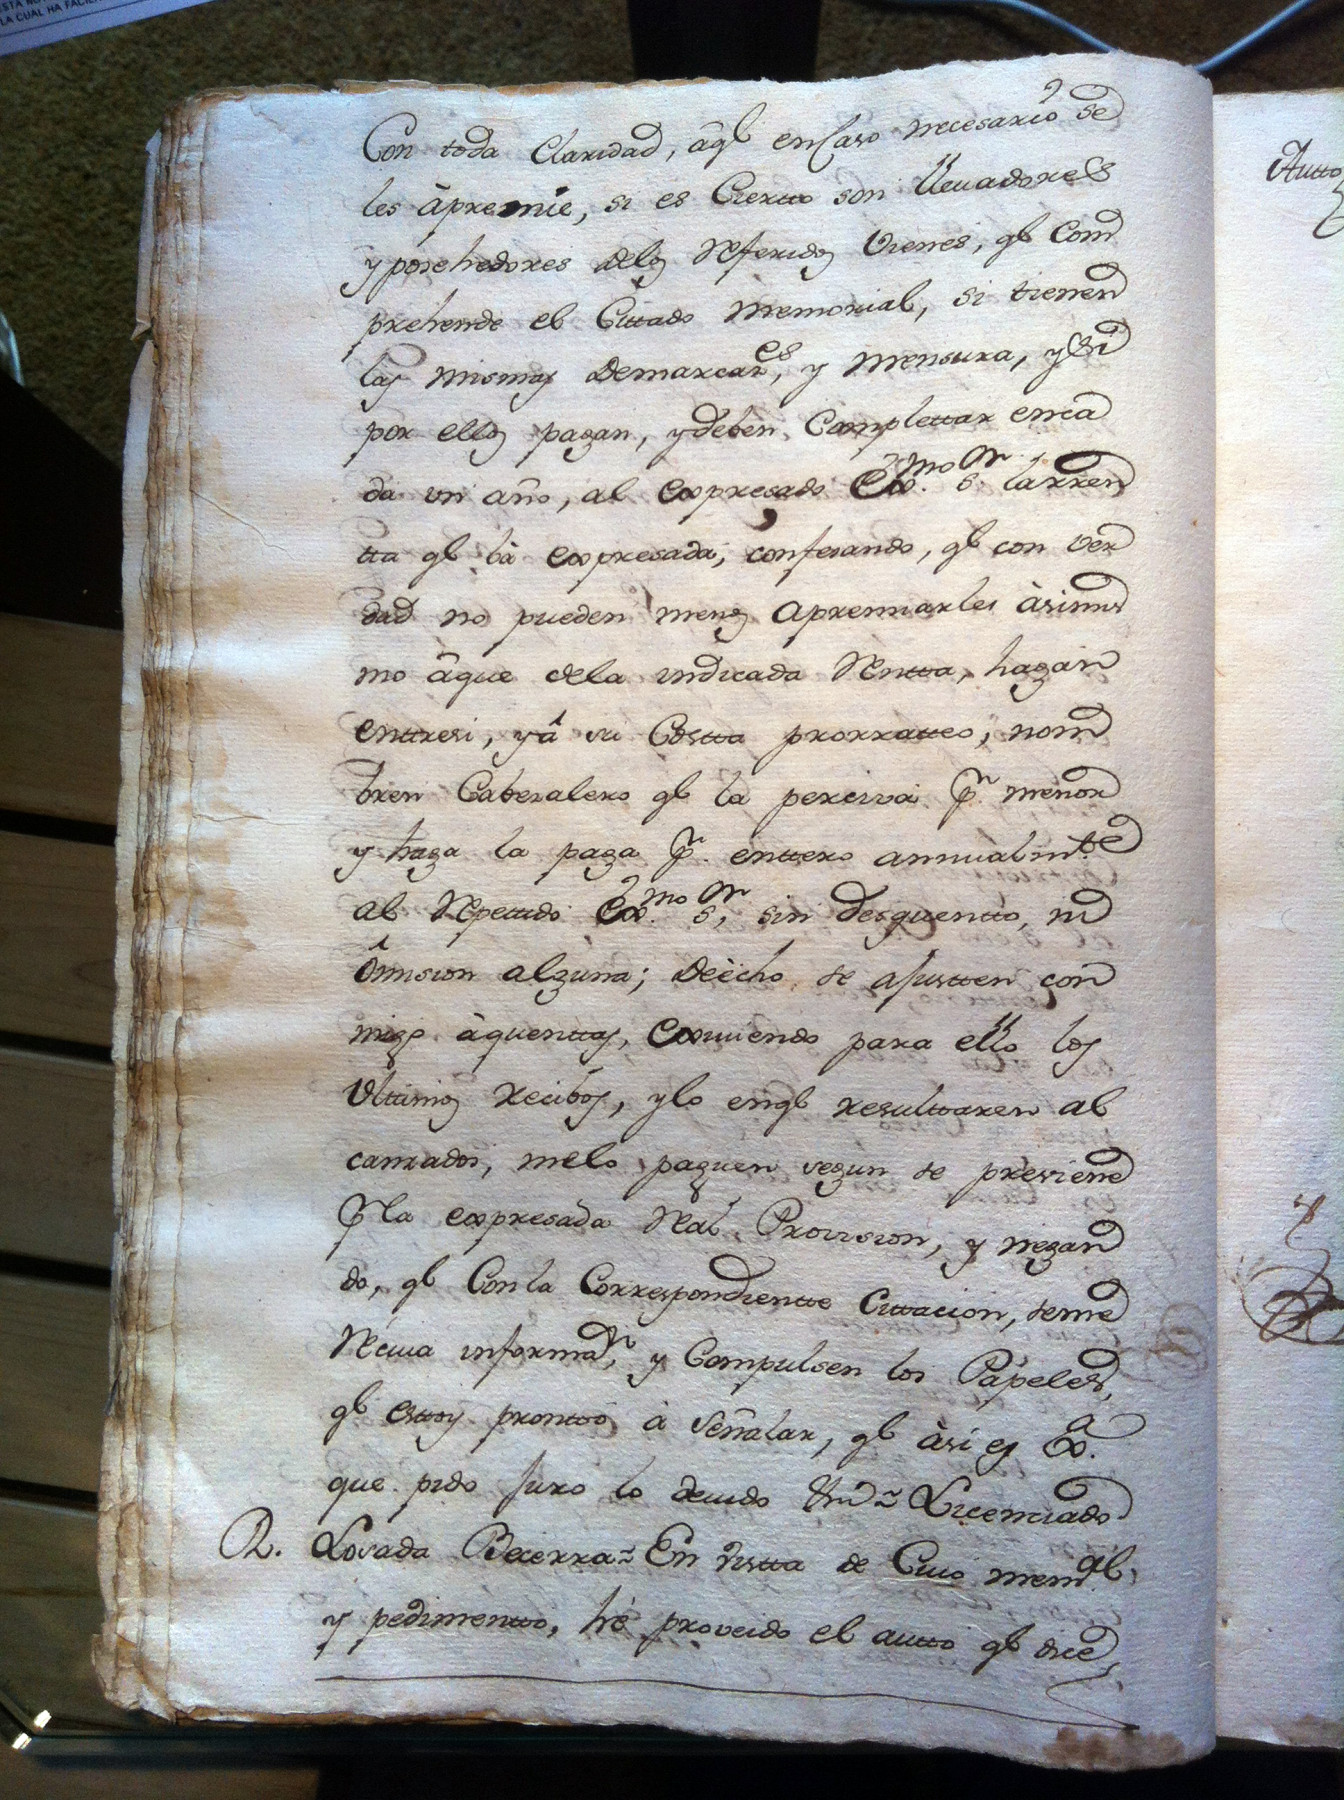 ESTA NO
LA CUAL HA FACILI
Con toda Claridad, âql en Caso necesario se
les âpremie, si es Ciertto son llevadores
y posehedores delos Referidos Vienes, ql Com
prehende el Cittado Memorial, si tienen
las mismas demarcac.es, y mensura, y si
por ellos pagan, y deben Complettar en ca
da un año, al expresado Exmo. Sr. la rren
tta ql bà expresada, confesando, ql con ver
dad no pueden menos apremiarles àsimis
mo âque dela indicada Rentta, hagan
enttresi, y â su Costta prorratteo, nom
bren Cabezalero ql la perciva pr. menor
y haga la paga pr. enttero annualmte
al Repetido Exmo. Sr, sin desquentto, ni
ômision alguna; deècho se ajustten con
migo àquenttas, exiviendo para ello los
Ulttimos recibos, y lo enql resulttaren al
canzados, melo paguen segun se previene
pr la expresada Real Provision, y negan
do, ql Con la Correspondientte Cittacion, seme
Reciva informaon, y Compulsen los Papeles,
ql esttoy prontto à Señalar, ql àsi es Exa.
que pido juro lo devido Licenciado
R. Losada Becerra~ En vistta de Cuio memal,
y pedimentto, hé proveido el autto ql dice
Autto